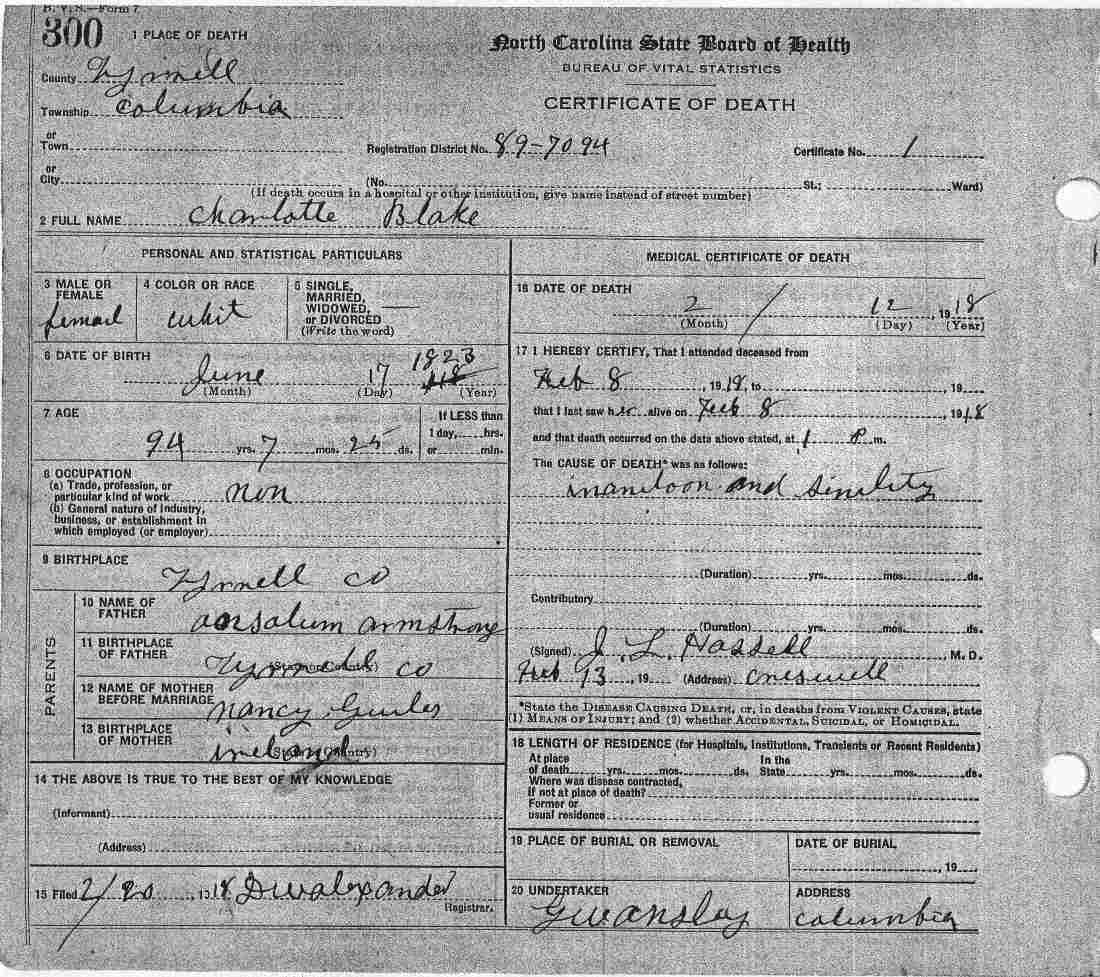 B. V. S.—Form 7
300
1 PLACE OF DEATH
North Carolina State Board of Health
BUREAU OF VITAL STATISTICS
CERTIFICATE OF DEATH
County Tyrrell
Township Columbia
or
Town
Registration District No. 89-7094
Certificate No. 1
or
City
(No.
St.;
Ward)
(If death occurs in a hospital or other institution, give name instead of street number)
2 FULL NAME Charlotte Blake
PERSONAL AND STATISTICAL PARTICULARS
3 MALE OR FEMALE
femail
4 COLOR OR RACE
whit
5 SINGLE,
MARRIED,
WIDOWED,
or DIVORCED
(Write the word)
6 DATE OF BIRTH
June 17 1823
(Month) (Day) (Year)
7 AGE
94 yrs. 7 mos. 25 ds.
If LESS than
1 day, hrs.
or min.
8 OCCUPATION
(a) Trade, profession, or
particular kind of work non
(b) General nature of Industry,
business, or establishment in
which employed (or employer)
9 BIRTHPLACE
Tyrrell co
PARENTS
10 NAME OF
FATHER
armstrong
11 BIRTHPLACE
OF FATHER
Tyrrell co
(State or Country)
12 NAME OF MOTHER
BEFORE MARRIAGE
nancy
13 BIRTHPLACE
OF MOTHER
ireland
(State or Country)
14 THE ABOVE IS TRUE TO THE BEST OF MY KNOWLEDGE
(Informant)
(Address)
15 Filed 2/20, 1918 D W Alexander
Registrar.
MEDICAL CERTIFICATE OF DEATH
16 DATE OF DEATH
2 / 12, 1918
(Month) (Day) (Year)
17 I HEREBY CERTIFY, That I attended deceased from
Feb 8, 1918, to , 19
that I last saw her alive on Feb 8, 1918
and that death occurred on the date above stated, at 1 P m.
The CAUSE OF DEATH* was as follows:
and
(Duration) yrs. mos. ds.
Contributory
(Duration) yrs. mos. ds.
(Signed) J. L. Hassell, M. D.
Feb 13, 19 (Address) Creswell
*State the DISEASE CAUSING DEATH, or, in deaths from VIOLENT CAUSES, state
(1) MEANS OF INJURY; and (2) whether ACCIDENTAL, SUICIDAL, or HOMICIDAL.
18 LENGTH OF RESIDENCE (for Hospitals, Institutions, Transients or Recent Residents)
At place
of death yrs. mos. ds.
In the
State yrs. mos. ds.
Where was disease contracted,
If not at place of death?
Former or
usual residence
19 PLACE OF BURIAL OR REMOVAL
DATE OF BURIAL
, 19
20 UNDERTAKER
ADDRESS
columbia